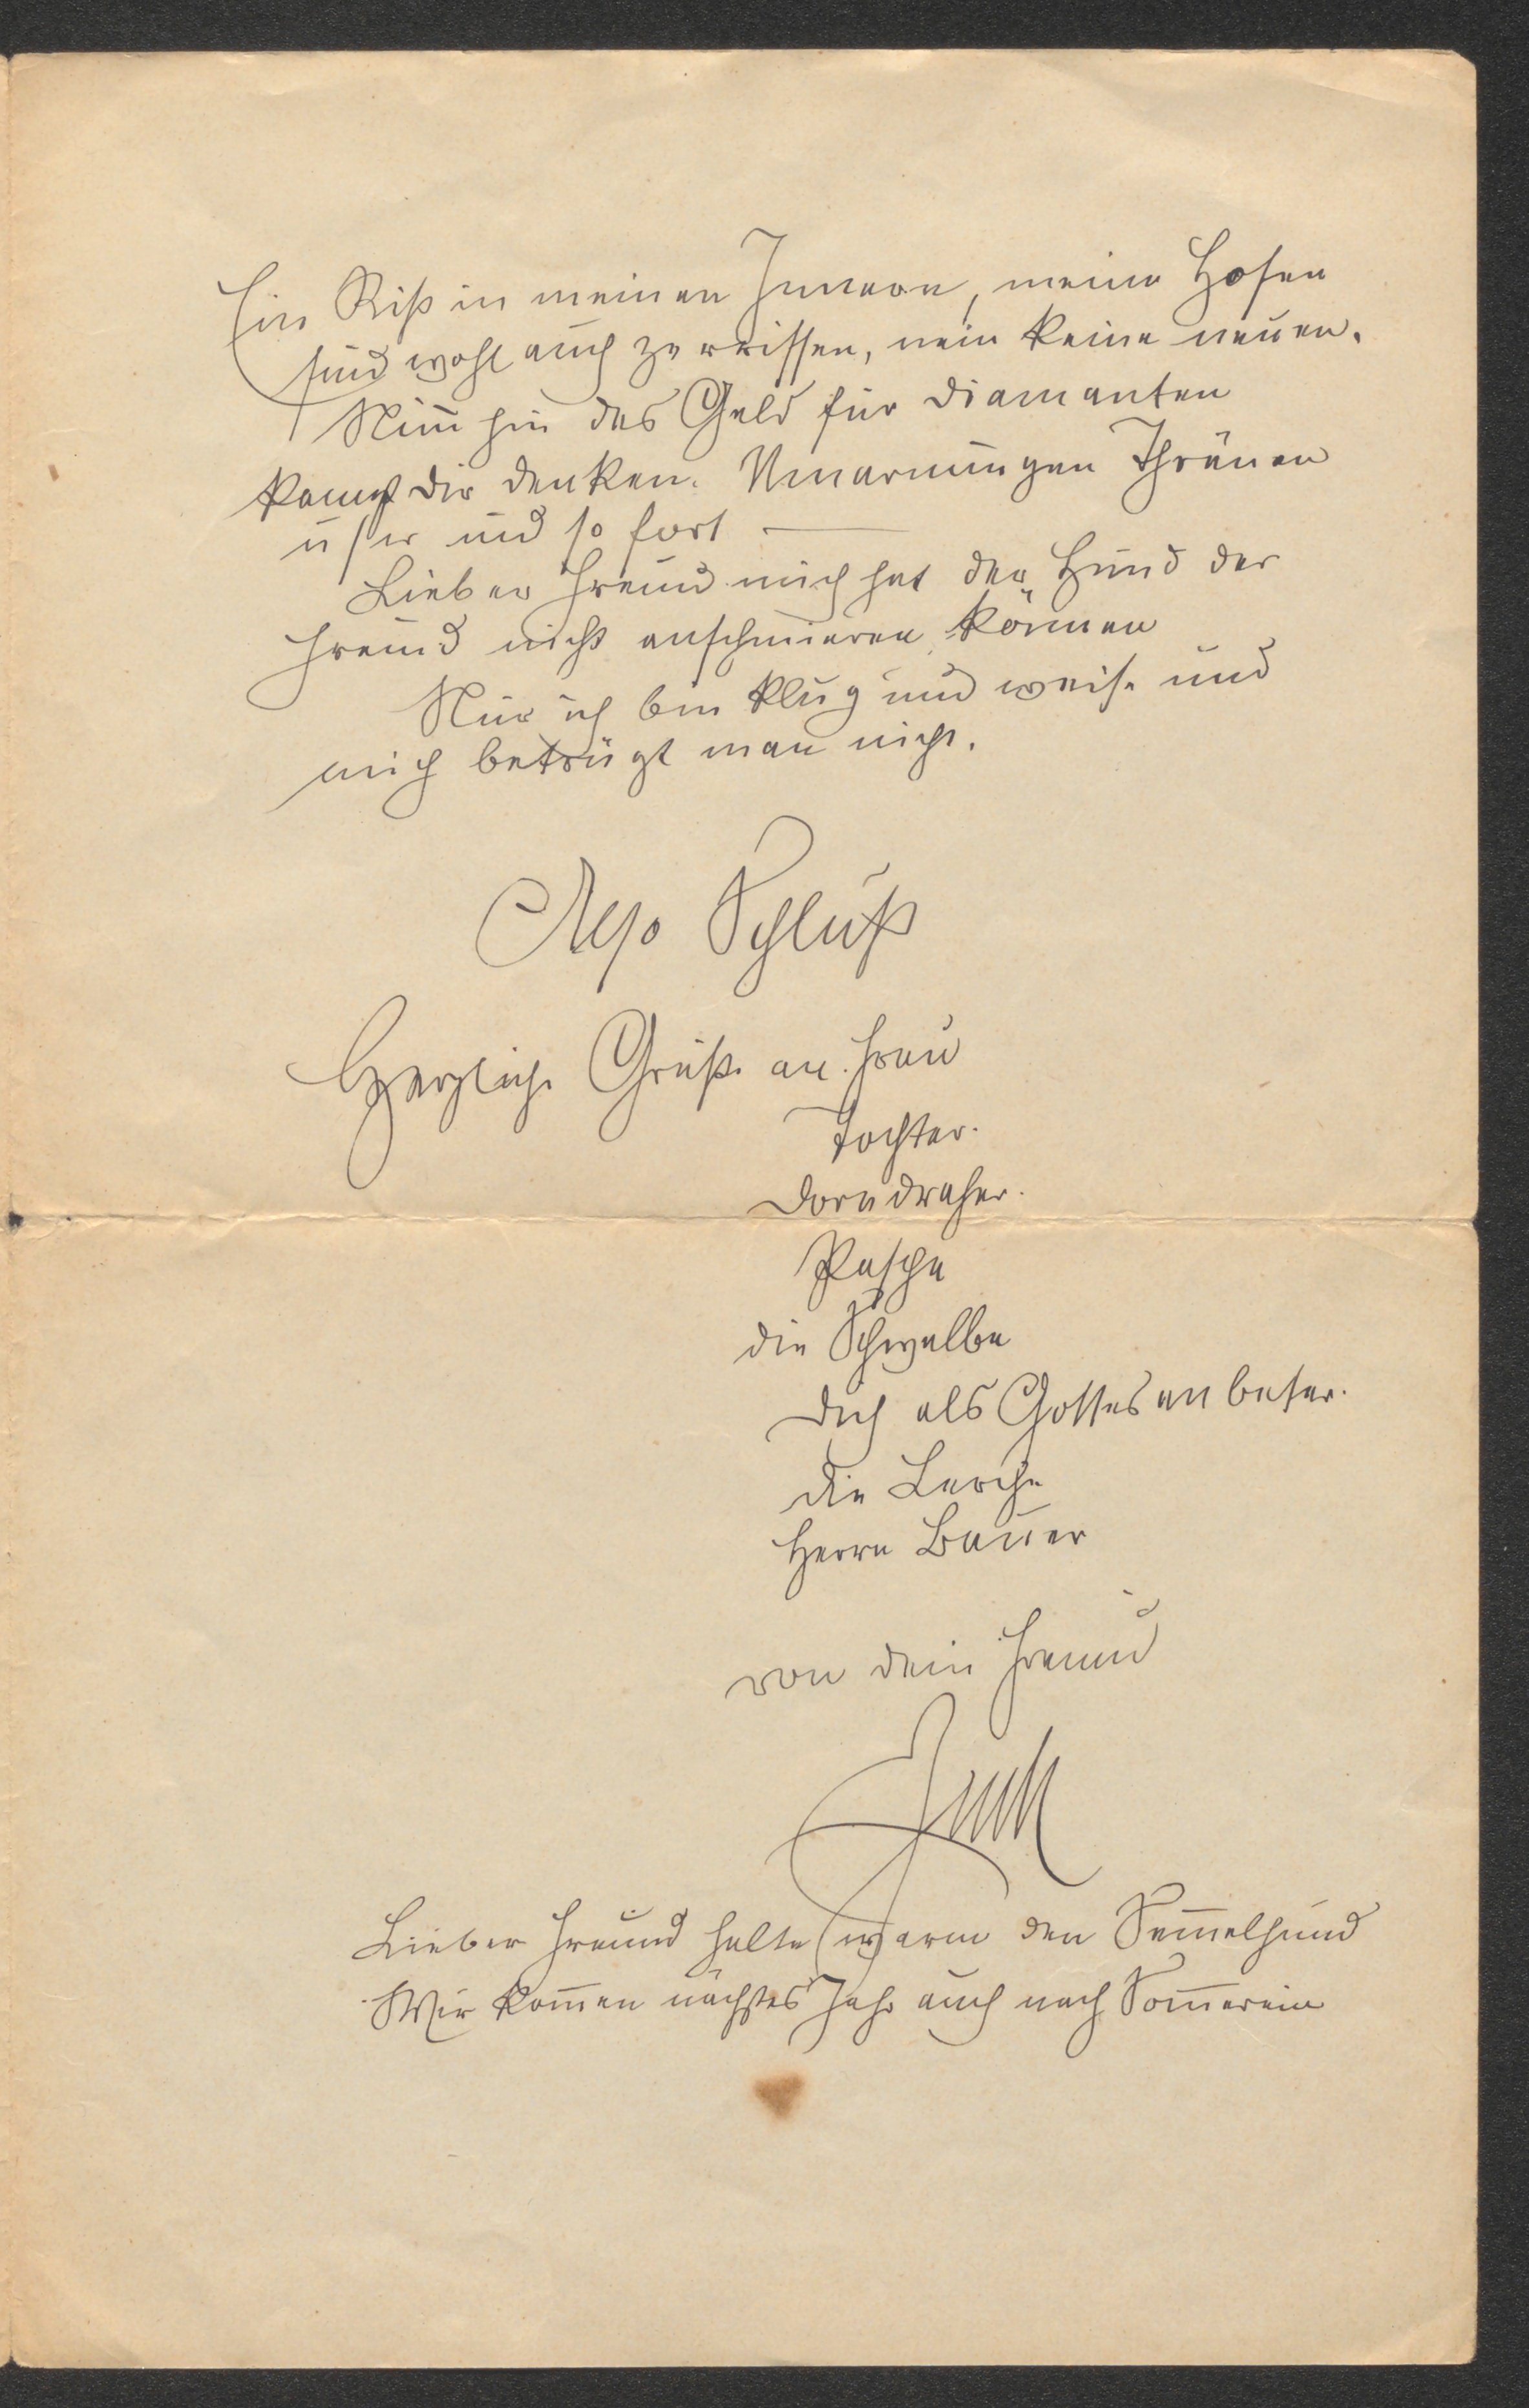 Ein Riß in meinen Innern, meine Hosen
sind wohl auch zerrissen, nein keine neuen.
Nim̅ hin das Geld für Diamanten
kannst dir denken. Umarmungen Thränen
u s w und so fort —
Lieber Freund mich hat der Hund der
Freund nicht anschmieren können
Nur ich bin klug und weise und
mich betrügt man nicht.
Also Schluß
Herzliche Grüße an Frau
Tochter.
Dorndreher.
Pascha
die Schwalbe
Dich als Gottesanbeter.
die Lerche
Herrn Bauer
von dein Freund
Lieber Freund halte (w)arm den Sem̅elhund
Wir kom̅en nächstes Jahr auch nach Som̅erein